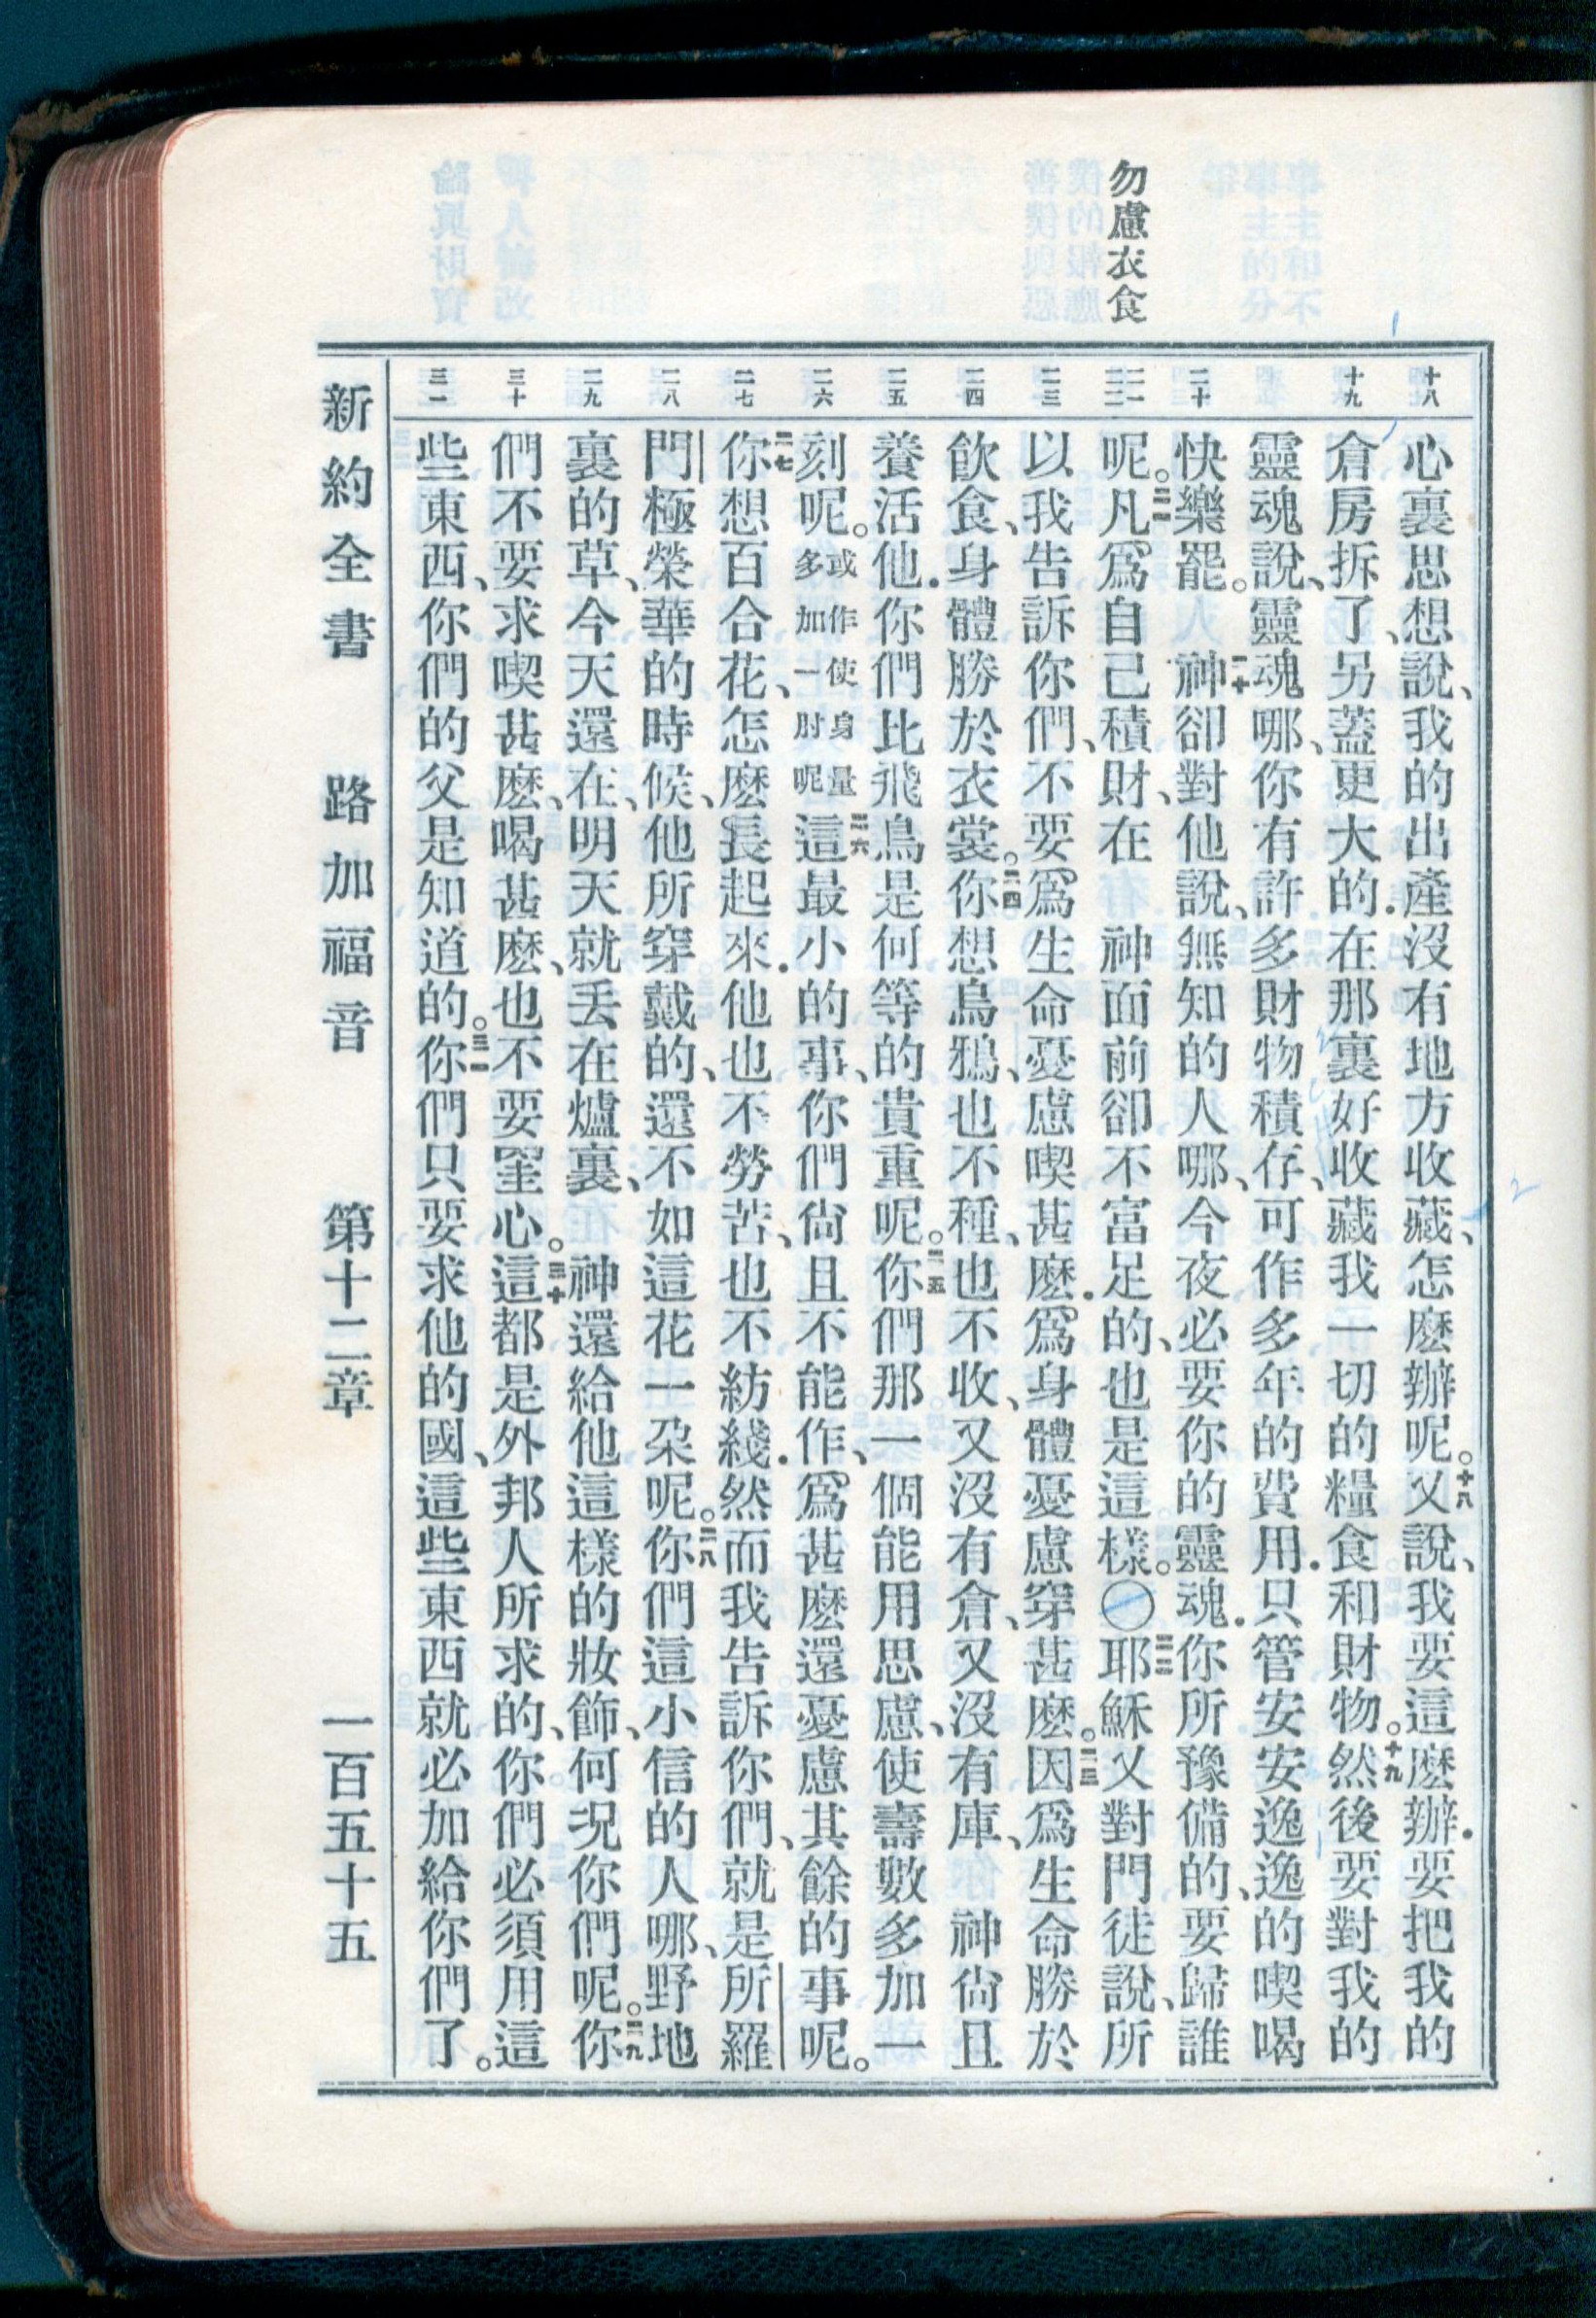 勿慮衣食
十八
十九
二十
二一
二二
二三
二四
二五
二六
二七
二八
二九
三十
三一
心裏思想、說、我的出產沒有地方收藏、怎麽辦呢。十八又說、我要這麽辦．要把我的
倉房拆了、另蓋更大的．在那裏好收藏我一切的糧食和財物。十九然後要對我的
靈魂說、靈魂哪、你有許多財物積存、可作多年的費用．只管安安逸逸的喫喝
快樂罷。二十神卻對他說、無知的人哪、今夜必要你的靈魂．你所豫備的、要歸誰
呢。二一凡爲自己積財、在 神面前卻不富足的、也是這樣。〇二二耶穌又對門徒說、所
以我告訴你們、不要爲生命憂慮喫甚麽．爲身體憂慮穿甚麽。二三因爲生命勝於
飲食、身體勝於衣裳。二四你想烏鴉、也不種、也不收、又沒有倉、又沒有庫、 神尙且
養活他．你們比飛鳥是何等的貴重呢。二五你們那一個能用思慮、使壽數多加一
刻呢。或作使身量多加一肘呢二六這最小的事、你們尙且不能作、爲甚麽還憂慮其餘的事呢。
二七你想百合花、怎麽長起來．他也不勞苦、也不紡綫．然而我告訴你們、就是所羅
門極榮華的時候、他所穿戴的、還不如這花一朶呢。二八你們這小信的人哪、野地
裏的草、今天還在、明天就丟在爐裏、 神還給他這樣的妝飾、何况你們呢。二九你
們不要求喫甚麽、喝甚麽、也不要罣心。三十這都是外邦人所求的、你們必須用這
些東西、你們的父是知道的。三一你們只要求他的國、這些東西就必加給你們了。
新約全書 路加福音 第十二章 一百五十五